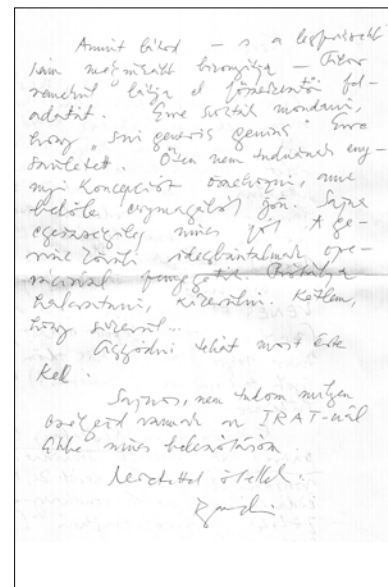 Amint látod – s a legfrissebb
szám meg
remekül látja el főszerkesztői fel-
adatát. Erre szokták mondani,
hogy "sui generis genius" Erre
született. Öten nem tudnának eny-
nyi koncepciót összehozni, ami
belőle egymagából jön. Sajna
egészségileg nincs jól. A ge-
rinc körüli idegbántalmak ope-
rációval fenyegetik. Próbálja
halasztani, kikerülni. Kétlem,
hogy sikerül...
Aggódni tehát most érte
kell.
Sajnos, nem tudom milyen
esélyeid vannak az IRAT-nál
Ebbe nincs beleszólásom
Szeretettel ölellek: